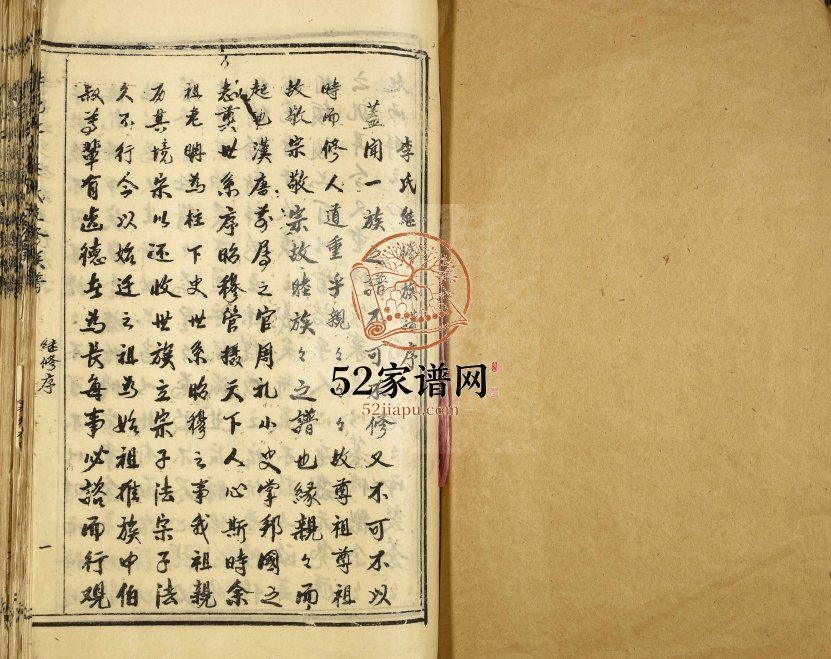 李氏继修族谱序
蓋闻一族之譜不可不修又不可不以
時而修人道重乎親々親々故尊祖尊祖
故敬宗敬宗故睦族々之譜也緣親々而
起也漢唐前屬之官周礼小史掌邦國之
志奠世系序昭穆管攝天下人心斯時余
祖老聃為柱下史世系昭穆之事我祖親
历其境宋以还收世族立宗子法宗子法
久不行今以始迁之祖為始祖推族中伯
叔等輩有齒德者為長每事必諮而行观
继修序
一
52家谱网
52jiapu.com